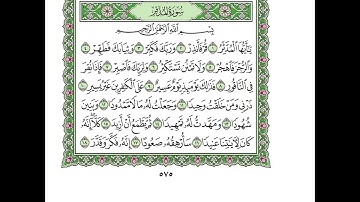 سُورَةُ المُدَّثِّرِ
بِسْمِ اللَّهِ الرَّحْمَٰنِ الرَّحِيمِ
يَا أَيُّهَا الْمُدَّثِّرُ ١ قُمْ فَأَنذِرْ ٢ وَرَبَّكَ فَكَبِّرْ ٣ وَثِيَابَكَ فَطَهِّرْ ٤
وَالرُّجْزَ فَاهْجُرْ ٥ وَلَا تَمْنُن تَسْتَكْثِرُ ٦ وَلِرَبِّكَ فَاصْبِرْ ٧ فَإِذَا نُقِرَ
فِي النَّاقُورِ ٨ فَذَٰلِكَ يَوْمَئِذٍ يَوْمٌ عَسِيرٌ ٩ عَلَى الْكَافِرِينَ غَيْرُ يَسِيرٍ ١٠
ذَرْنِي وَمَنْ خَلَقْتُ وَحِيدًا ١١ وَجَعَلْتُ لَهُ مَالًا مَّمْدُودًا ١٢ وَبَنِينَ
شُهُودًا ١٣ وَمَهَّدتُّ لَهُ تَمْهِيدًا ١٤ ثُمَّ يَطْمَعُ أَنْ أَزِيدَ ١٥ كَلَّا إِنَّهُ
كَانَ لِآيَاتِنَا عَنِيدًا ١٦ سَأُرْهِقُهُ صَعُودًا ١٧ إِنَّهُ فَكَّرَ وَقَدَّرَ ١٨
٥٧٥